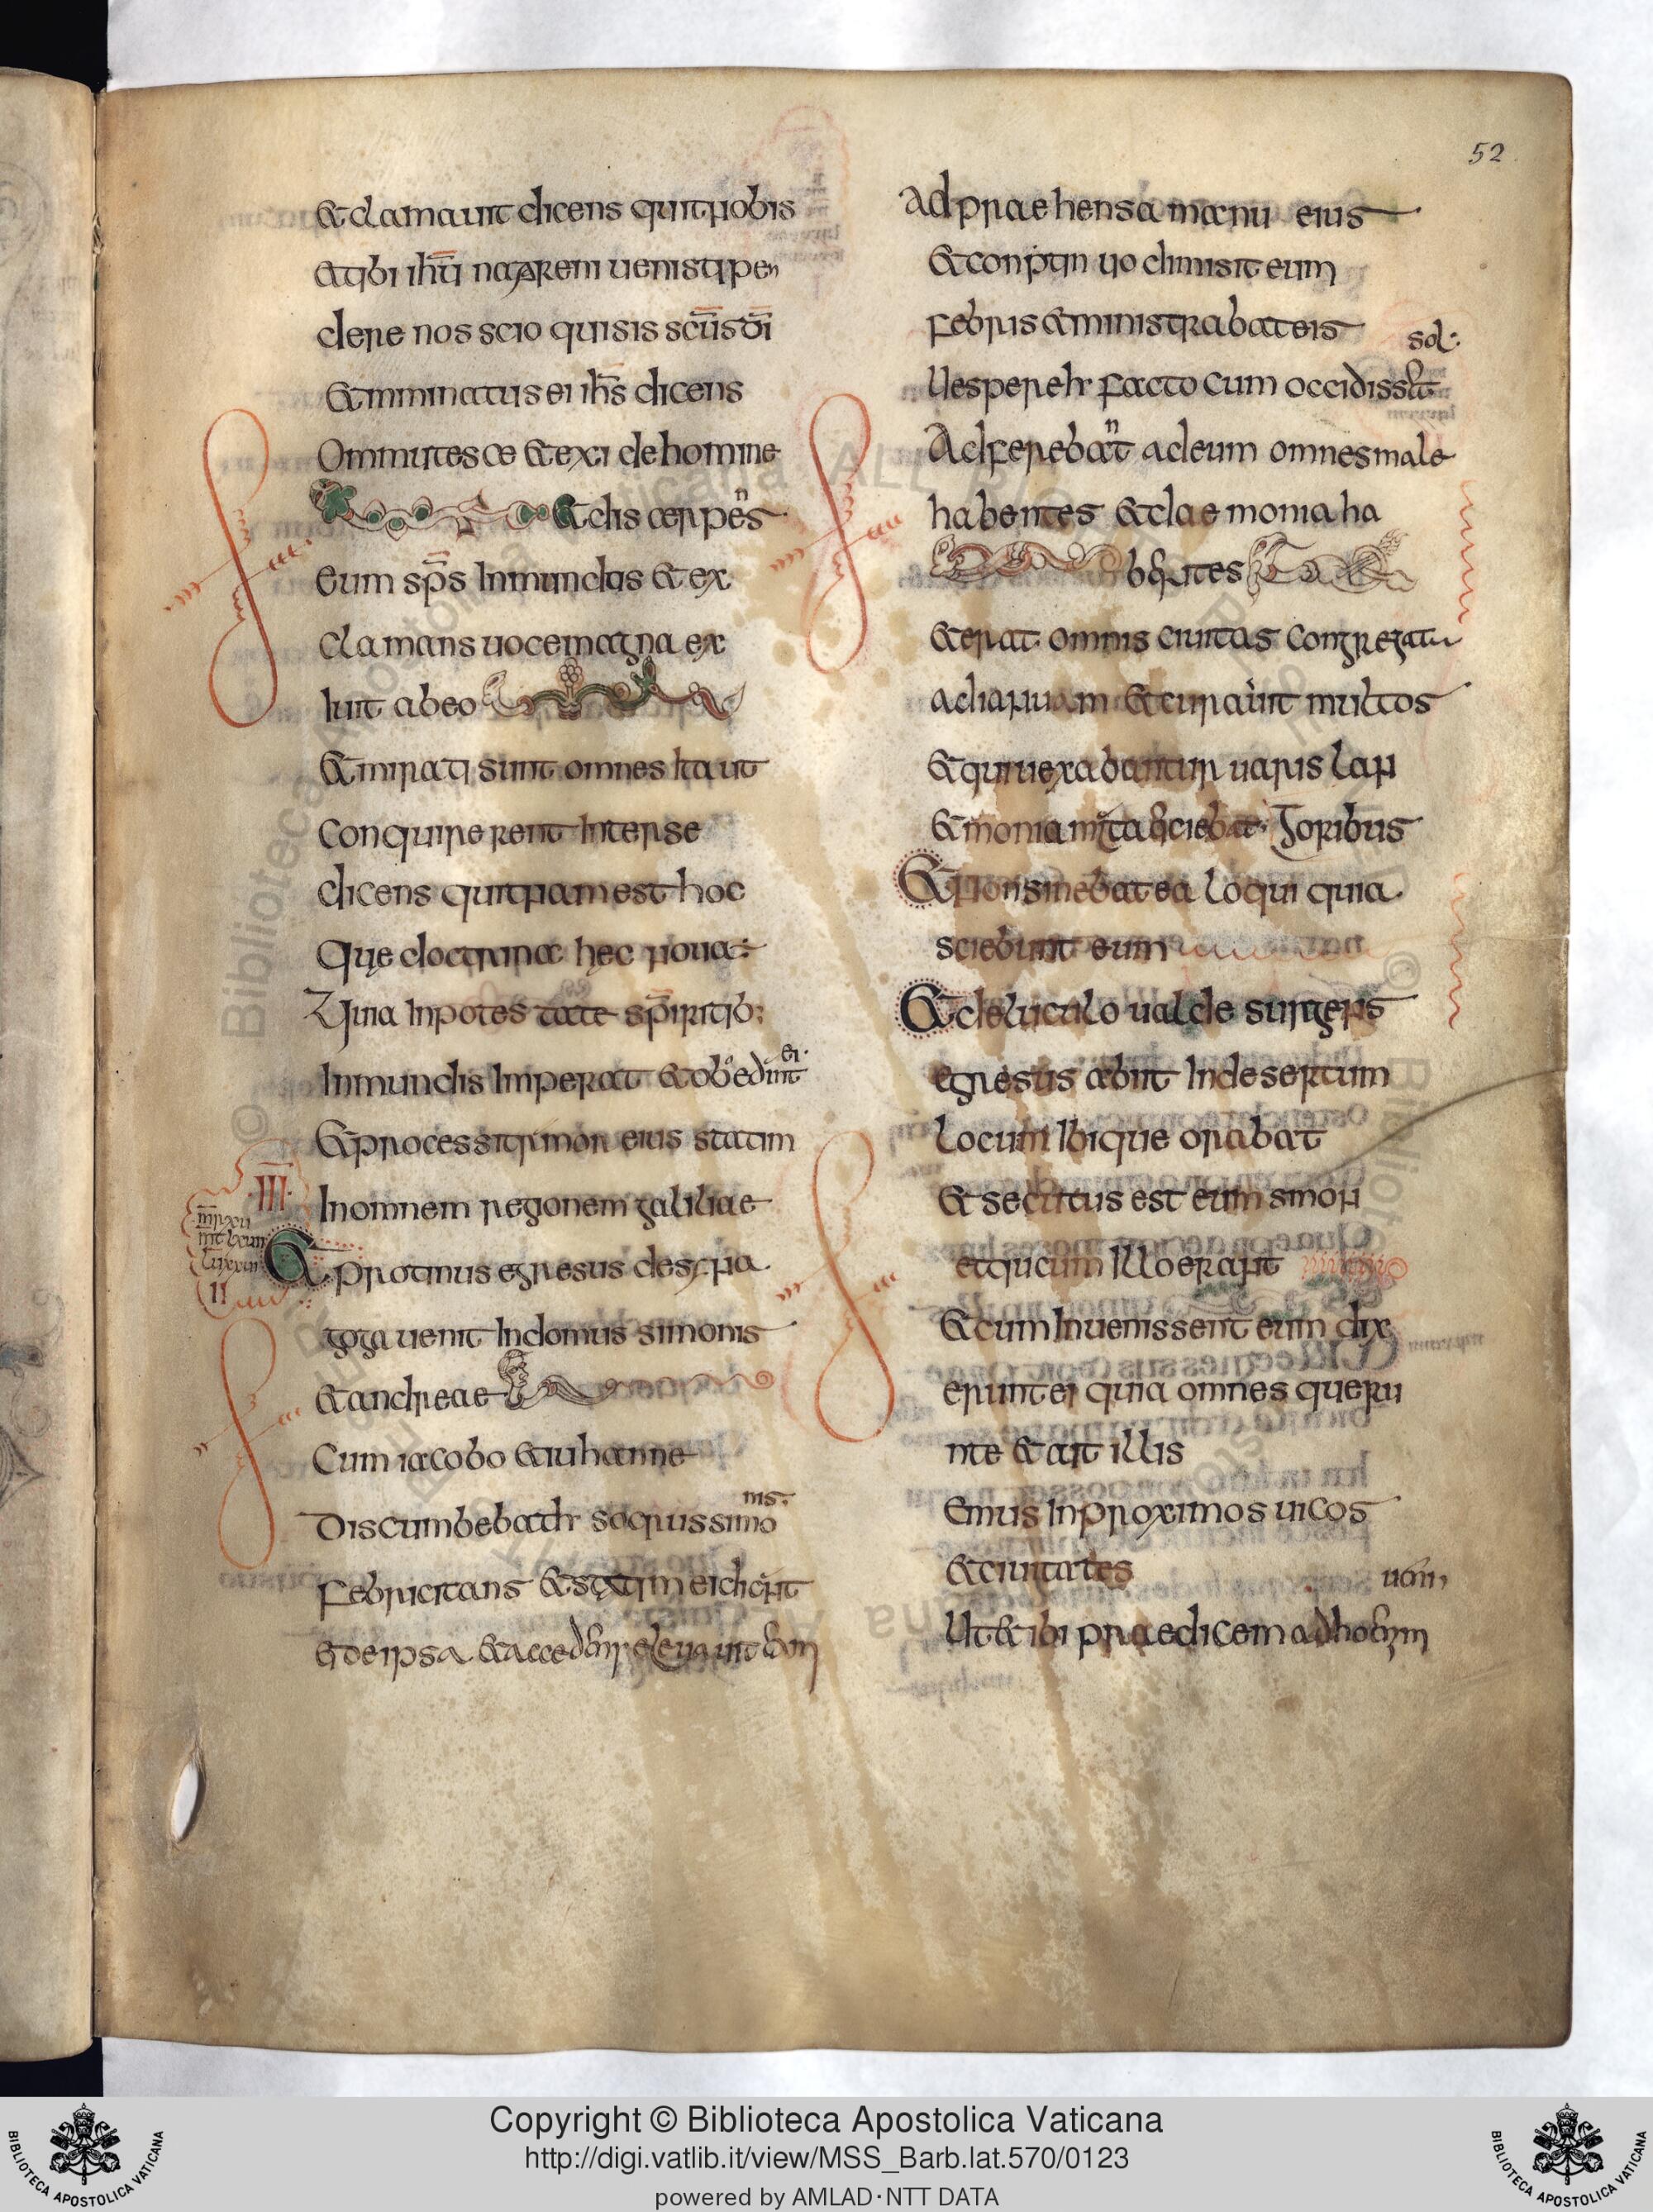 52
& clamauit dicens quit nobis
& tibi ihū nazarem uenisti pen
dere nos scio qui sis scūs dī
& imminatus ei ihs̄ dicens
Ommutesce & exi de homine
& discerpēs
eum sp̄s Inmundus & ex
clamans uoce magna ex
Iuit ab eo
& mirati sunt omnes Ita ut
Conquirerent Inter se
dicens quitnam est hoc
Que doctrina hec noua
Quia In potestate sp̄iritib;
Inmundis Imperat & oboediunt ei
& processit rumor eius statim
In omnem regonem galiliae
III
II
& protinus egresus de sina
goga uenit In domus simonis
& andreae
Cum iacobo & iuhanne
Discumbebat hr socrus simonis
Febricitans & statim ei dicunt
Adpraehensa manu eius
& contin uo dimisit eum
Febris & ministrabat eis
Uespere hr facto cum occidiss& sol
Adferebant ad eum omnes male
habentes & daemonia ha
bentes
& erat omnis ciuitas congregatu
ad ianuam & curauit multos
& qui uexabantur uaris lan
goribus
& non sinebat ea loqui quia
sciebunt eum
& deluculo ualde surgens
egresus abiit In desertum
locum Ibique orabat
& secutus est eum simon
et qui cum Illo erant
& cum Inuenissent eum dix
erunt ei quia omnes queru
nte & ait illis
Emus In proximos uicos
& ciuitates
Ut & ibi praedicem ad hoc enim uéni
© Biblioteca Apostolica Vaticana
Copyright © Biblioteca Apostolica Vaticana
http://digi.vatlib.it/view/MSS_Barb.lat.570/0123
powered by AMLAD·NTT DATA
BIBLIOTECA APOSTOLICA VATICANA
BIBLIOTECA APOSTOLICA VATICANA